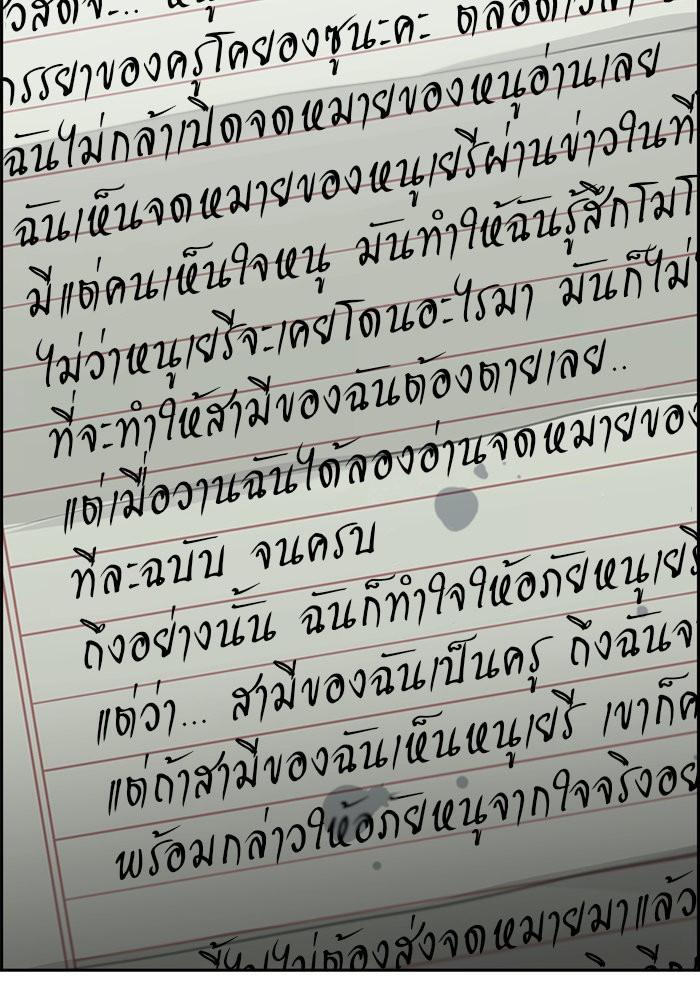 สวัสดีจ้ะ... หนู
ภรรยาของครูโคยองซูนะคะ ตลอดเวลา
ฉันไม่กล้าเปิดจดหมายของหนูอ่านเลย
ฉันเห็นจดหมายของหนูเยรีผ่านข่าวในที
มีแต่คนเห็นใจหนู มันทำให้ฉันรู้สึกโมโ
ไม่ว่าหนูเยรีจะเคยโดนอะไรมา มันก็ไม่
ที่จะทำให้สามีของฉันต้องตายเลย..
แต่เมื่อวานฉันได้ลองอ่านจดหมายของ
ทีละฉบับ จนครบ
ถึงอย่างนั้น ฉันก็ทำใจให้อภัยหนูเยรี
แต่ว่า... สามีของฉันเป็นครู ถึงฉันจ
แต่ถ้าสามีของฉันเห็นหนูเยรี เขาก็ค
พร้อมกล่าวให้อภัยหนูจากใจจริงอย
ไม่ต้องส่งจดหมายมาแล้ว